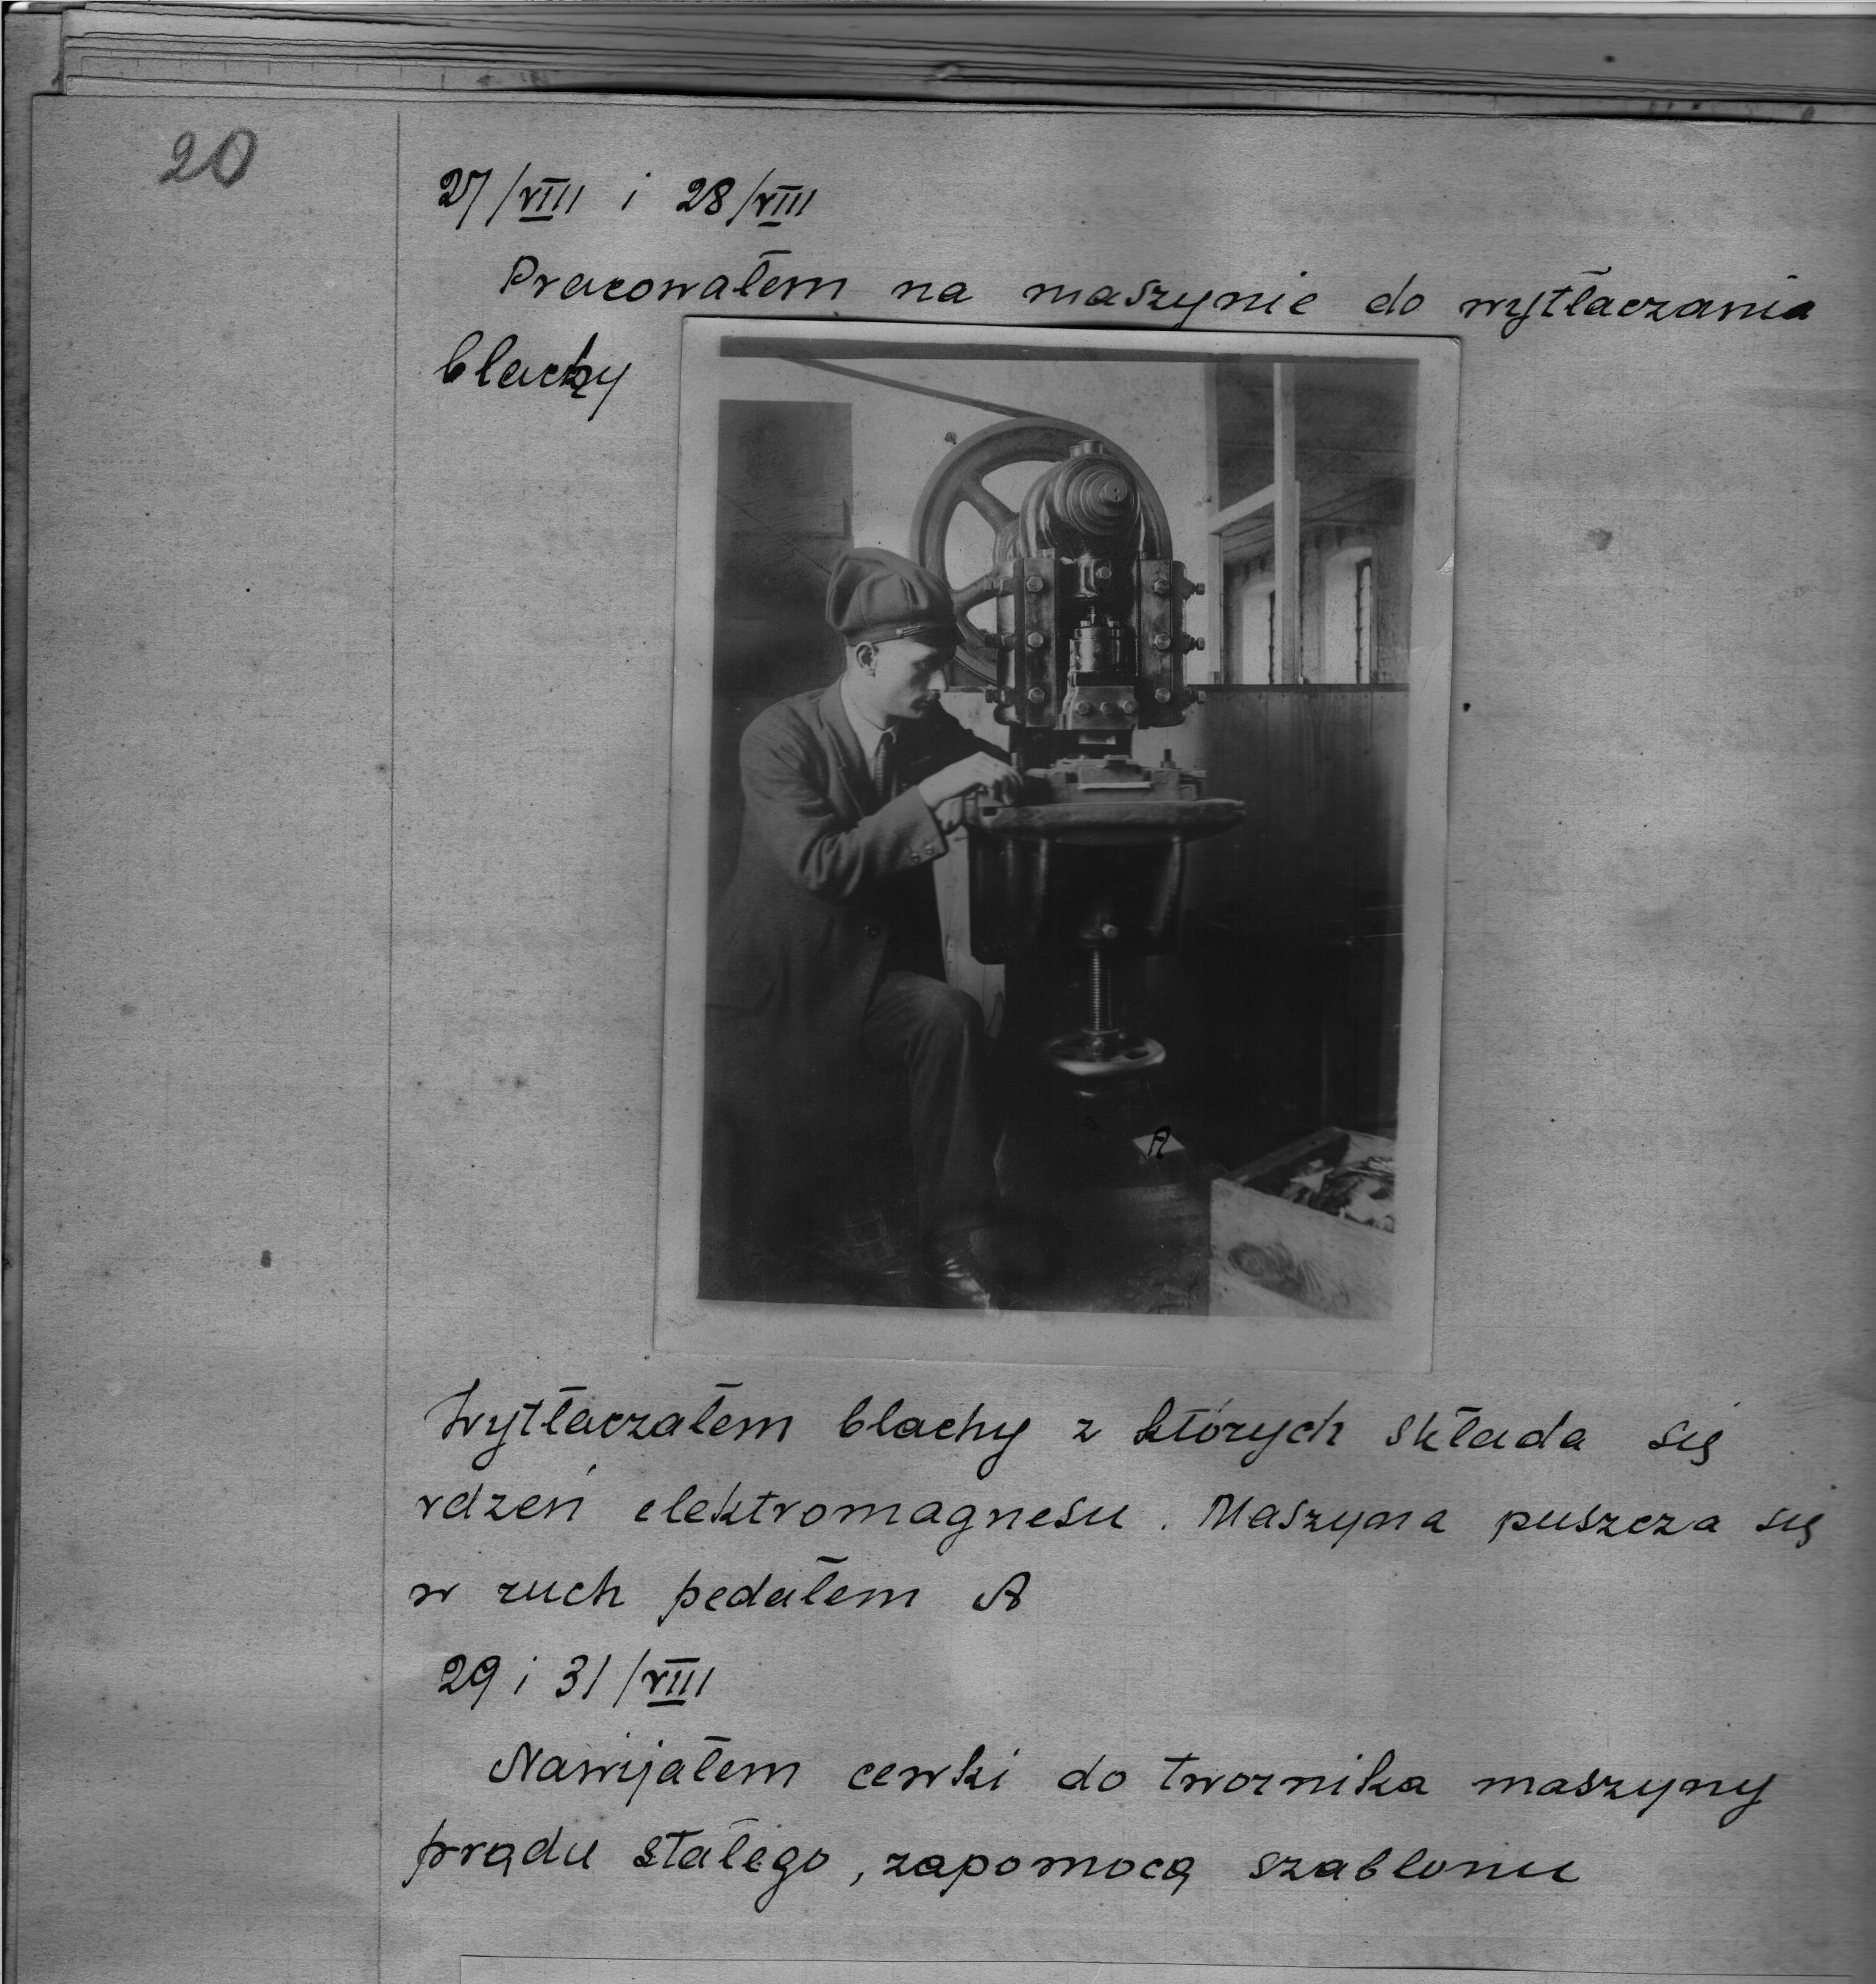 20
27/VIII i 28/VIII
Pracowałem na maszynie do wytłaczania
blachy
A
Wytłaczałem blachy z których składa się
rdzeń elektromagnesu. Maszyna puszcza się
w ruch pedałem A
29 i 31/VIII
Nawijałem cewki do twornika maszyny
prądu stałego, zapomocą szablonu